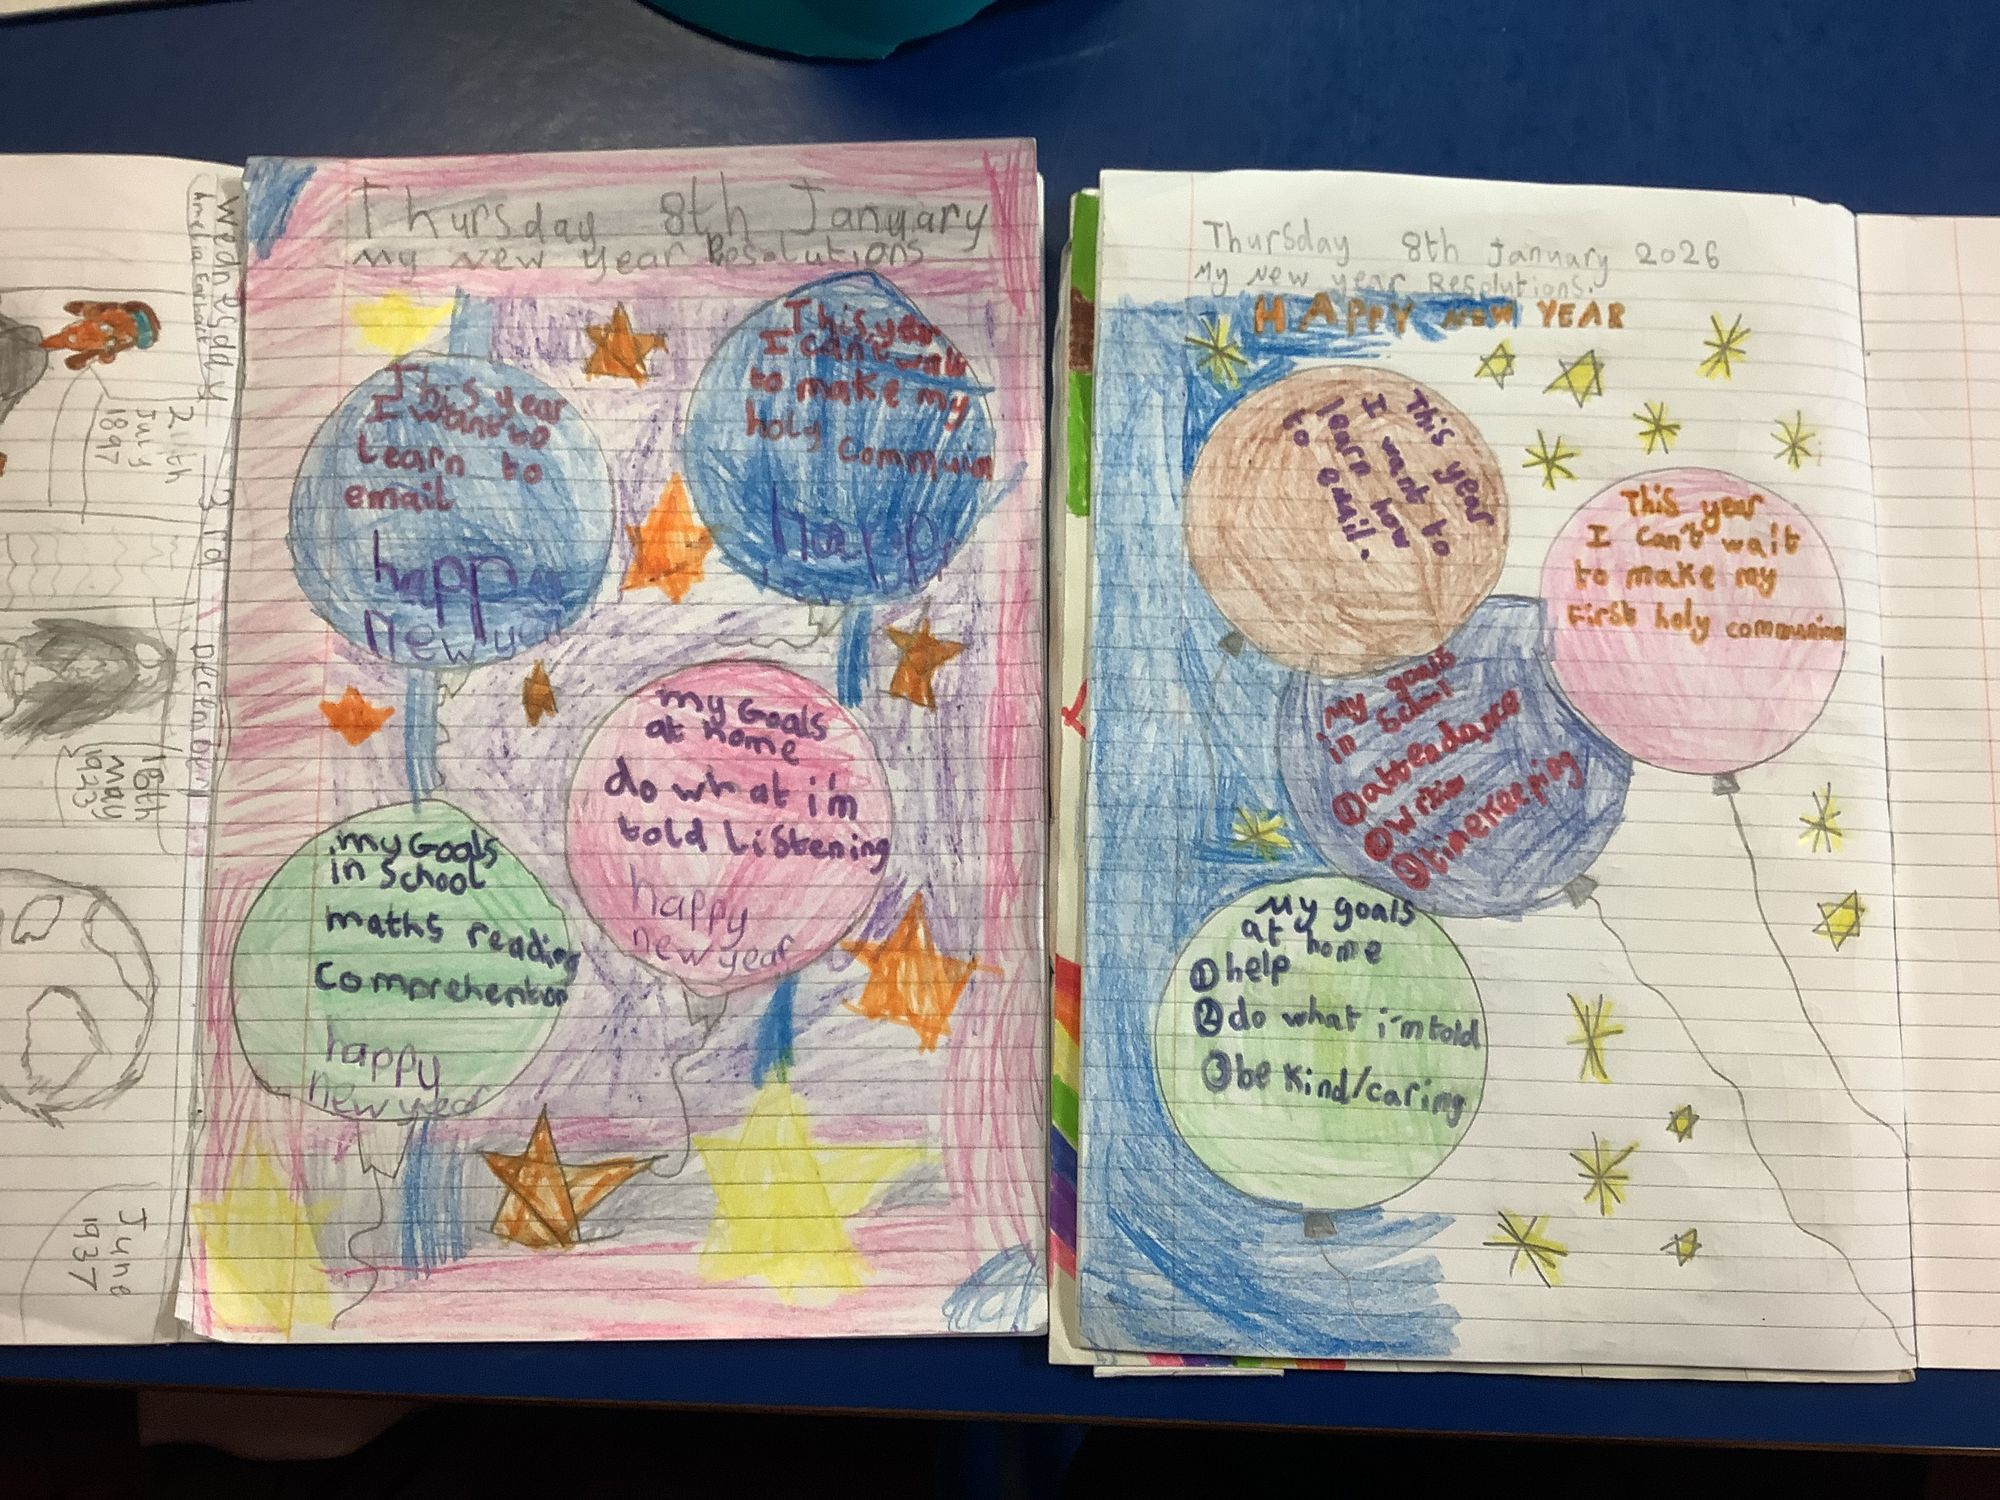 Wednesday 3rd December
Amelia Earhart
24th
July
1897
18th
may
1923
June
1937
Thursday 8th January
My New Year Resolutions
This year
I want to
Learn to
email
happy
new year
This year
I can't wait
to make my
holy Commuin
happy
my Goals
at home
do what i'm
told Listening
happy
new year
my Goals
in School
maths reading
Comprehention
happy
new year
Thursday 8th January 2026
My New year Resolutions.
HAPPY NEW YEAR
This year
I want to
learn how
to email.
This year
I can't wait
to make my
First holy communion
My goals
in School
① attendance
② writin
③ timekeeping
My goals
at home
① help
② do what i'm told
③ be kind/caring